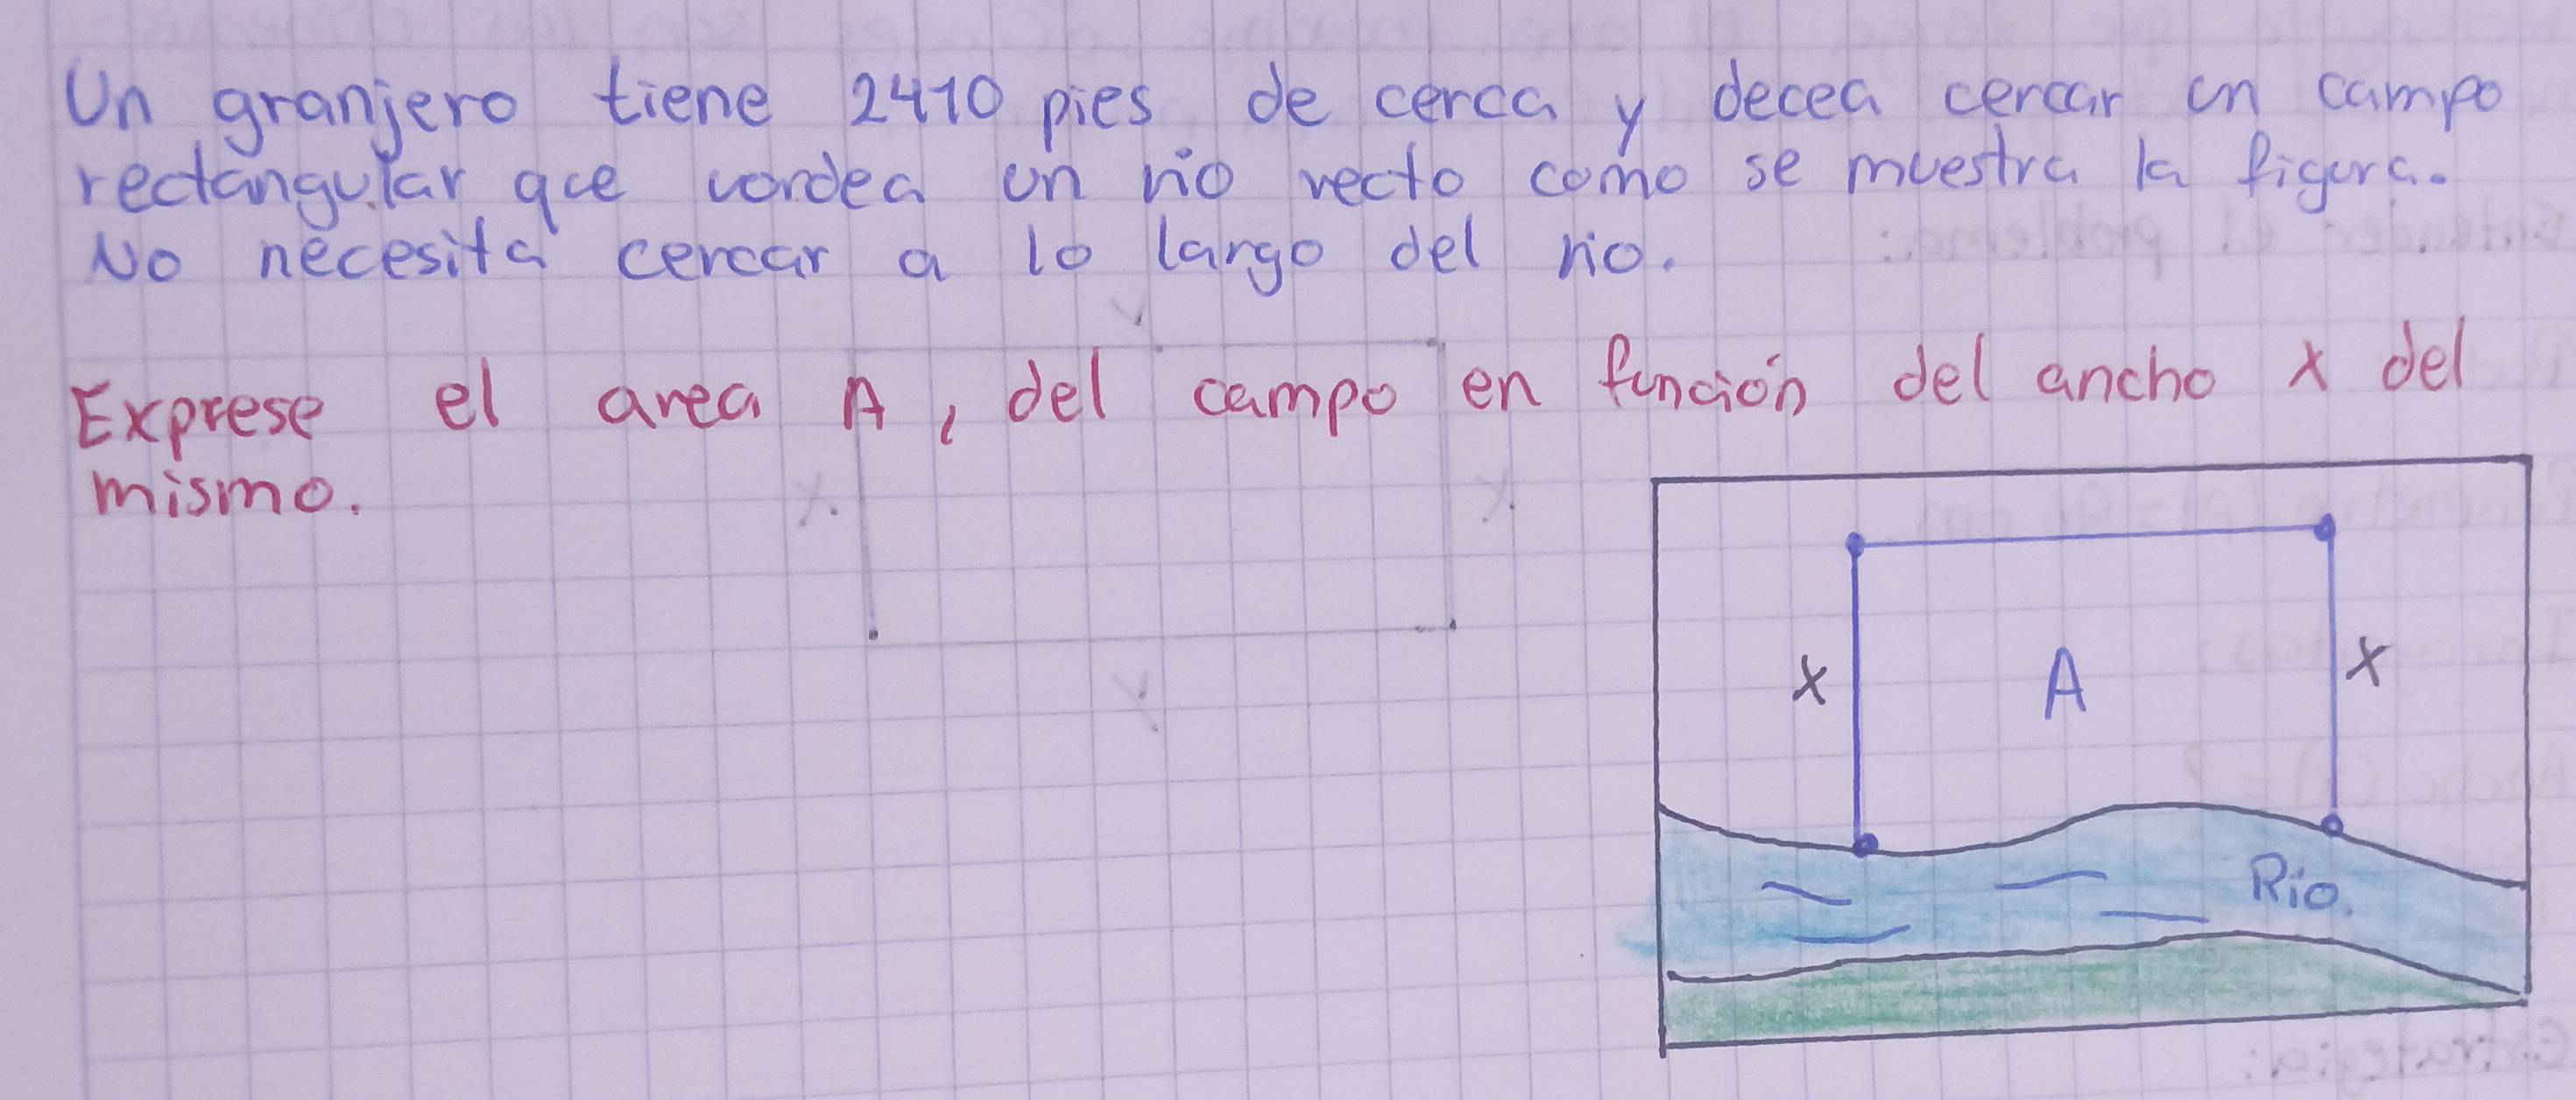 Un granjero tiene 2410 pies de cerca y decea cercar un campo
rectangular que vordea un rio recto como se muestra la figura.
No necesita cercar a lo largo del rio.
y
Exprese el area A, del campo en función del ancho x del
mismo.
x
x
x
A
x
y
Rio.